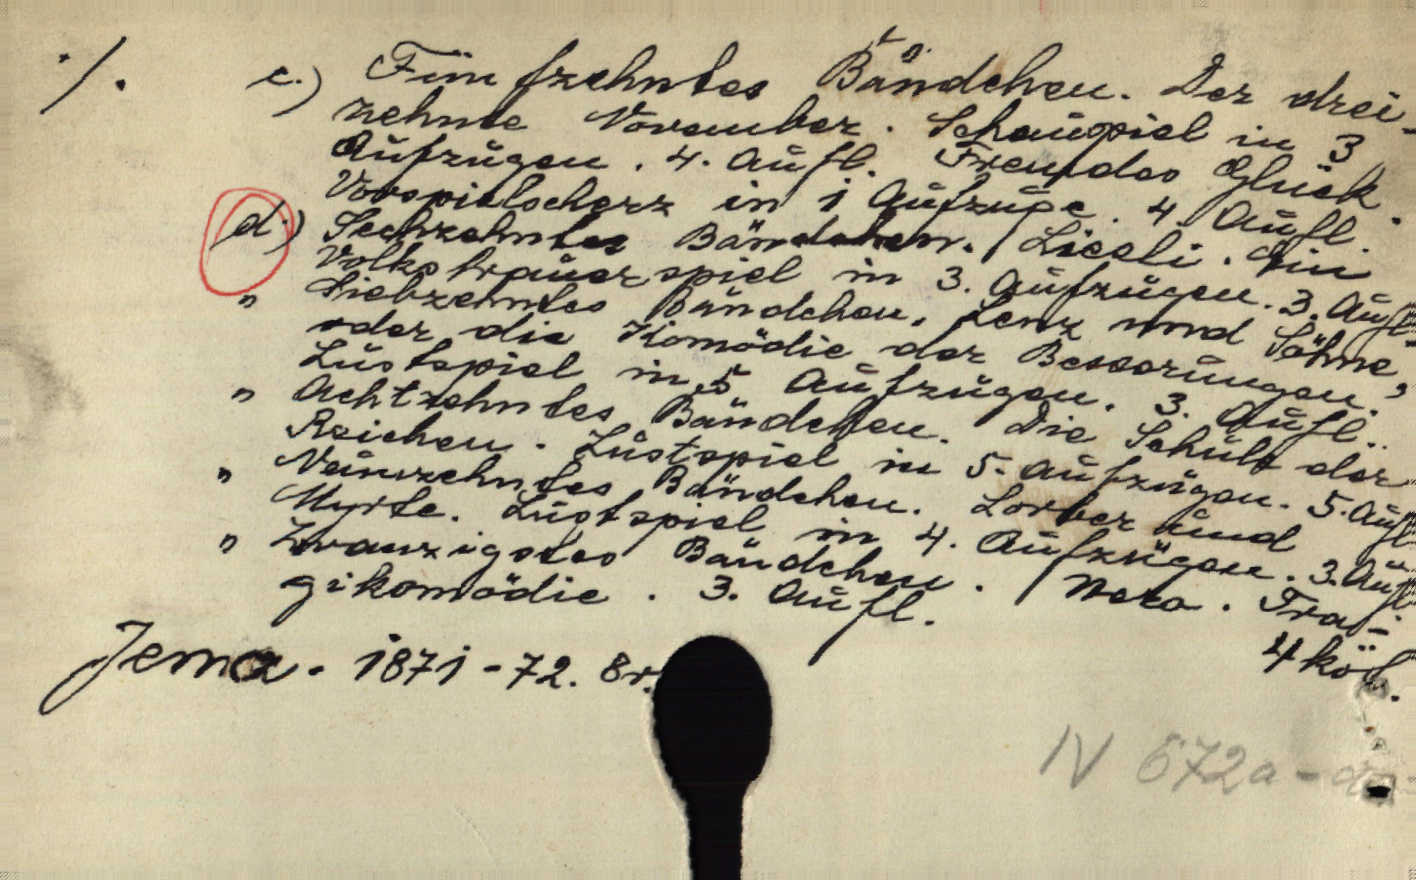 ./.
c.) Fünfzehntes Bändchen. Der drei-
zehnte November. Schauspiel in 3
Aufzügen. 4. Aufl. Fremdes Glück.
Vorspielscherz in 1 Aufzuge. 4 Aufl.
d.) Sechzehntes Bändchen. Lieesli. Ein
Volkstrauerspiel in 3. Aufzügen. 3. Aufl.
" Siebzehntes Bändchen. Lenz und Söhne,
oder die Komödie der Besserungen.
Lustspiel in 5 Aufzügen. 3. Aufl.
" Achtzehntes Bändchen. Die Schule der
Reichen. Lustspiel in 5. Aufzügen. 5. Aufl
" Neunzehntes Bändchen. Lorber und
Myrte. Lustspiel in 4. Aufzügen. 3. Aufl
" Zwanzigstes Bändchen. Nero. Tra-
gikomödie. 3. Aufl.
4 köt.
Jena. 1871-72. 8r.
IV 672a-d